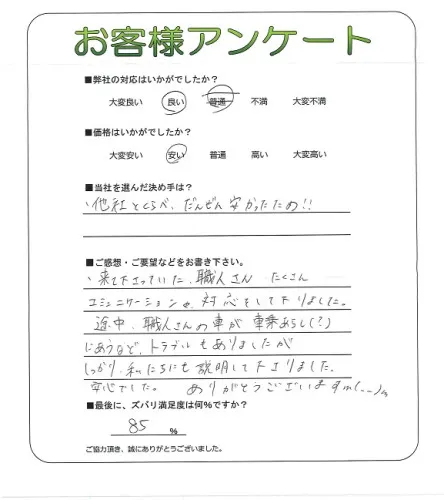 お客様アンケート
■弊社の対応はいかがでしたか？
大変良い 良い 普通 不満 大変不満
■価格はいかがでしたか？
大変安い 安い 普通 高い 大変高い
■当社を選んだ決め手は？
・他社とくらべ、だんぜん安かったため!!
■ご感想・ご要望などをお書き下さい。
・来て下さっていた、職人さん たくさん
コミュニケーションや、対応をして下りました。
途中、職人さんの車が 車乗あらし(?)
にあうなど、トラブルもありましたが
しっかり、私たちにも説明して下さりました。
安心でした。 ありがとうございますm(__)m
■最後に、ズバリ満足度は何％ですか？
85 %
ご協力頂き、誠にありがとうございました。